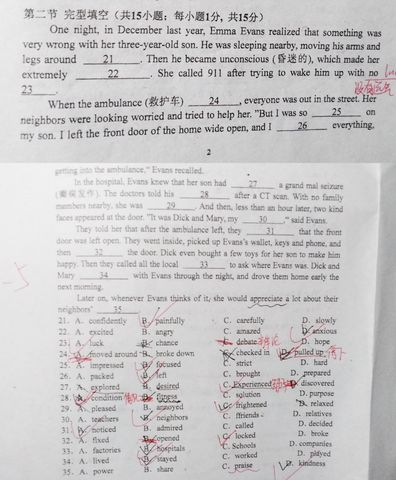 第二节 完型填空（共15小题；每小题1分, 共15分）
One night, in December last year, Emma Evans realized that something was
very wrong with her three-year-old son. He was sleeping nearby, moving his arms and
legs around 21 . Then he became unconscious (昏迷的), which made her
extremely 22 . She called 911 after trying to wake him up with no
23 .
When the ambulance (救护车) 24 , everyone was out in the street. Her
neighbors were looking worried and tried to help her. "But I was so 25 on
my son. I left the front door of the home wide open, and I 26 everything,
2
getting into the ambulance," Evans recalled.
In the hospital, Evans knew that her son had 27 a grand mal seizure
(癫痫发作). The doctors told his 28 after a CT scan. With no family
members nearby, she was 29 . And then, less than an hour later, two kind
faces appeared at the door. "It was Dick and Mary, my 30 ," said Evans.
They told her that after the ambulance left, they 31 that the front
door was left open. They went inside, picked up Evans's wallet, keys and phone, and
then 32 the door. Dick even bought a few toys for her son to make him
happy. Then they called all the local 33 to ask where Evans was. Dick and
Mary 34 with Evans through the night, and drove them home early the
next morning.
Later on, whenever Evans thinks of it, she would appreciate a lot about their
neighbors' 35 .
21. A. confidently B. painfully C. carefully D. slowly
22. A. excited B. angry C. amazed D. anxious
23. A. luck B. chance C. debate D. hope
24. A. moved around B. broke down C. checked in D. pulled up
25. A. impressed B. focused C. strict D. hard
26. A. packed B. left C. brought D. prepared
27. A. explored B. desired C. Experienced D. discovered
28. A. condition B. fitness C. solution D. purpose
29. A. pleased B. annoyed C. frightened D. relaxed
30. A. teachers B. neighbors C. ffriends D. relatives
31. A. noticed B. admired C. called D. decided
32. A. fixed B. opened C. locked D. broke
33. A. factories B. hospitals C. Schools D. companies
34. A. lived B. stayed C. worked D. played
35. A. power B. share C. praise D. kindness